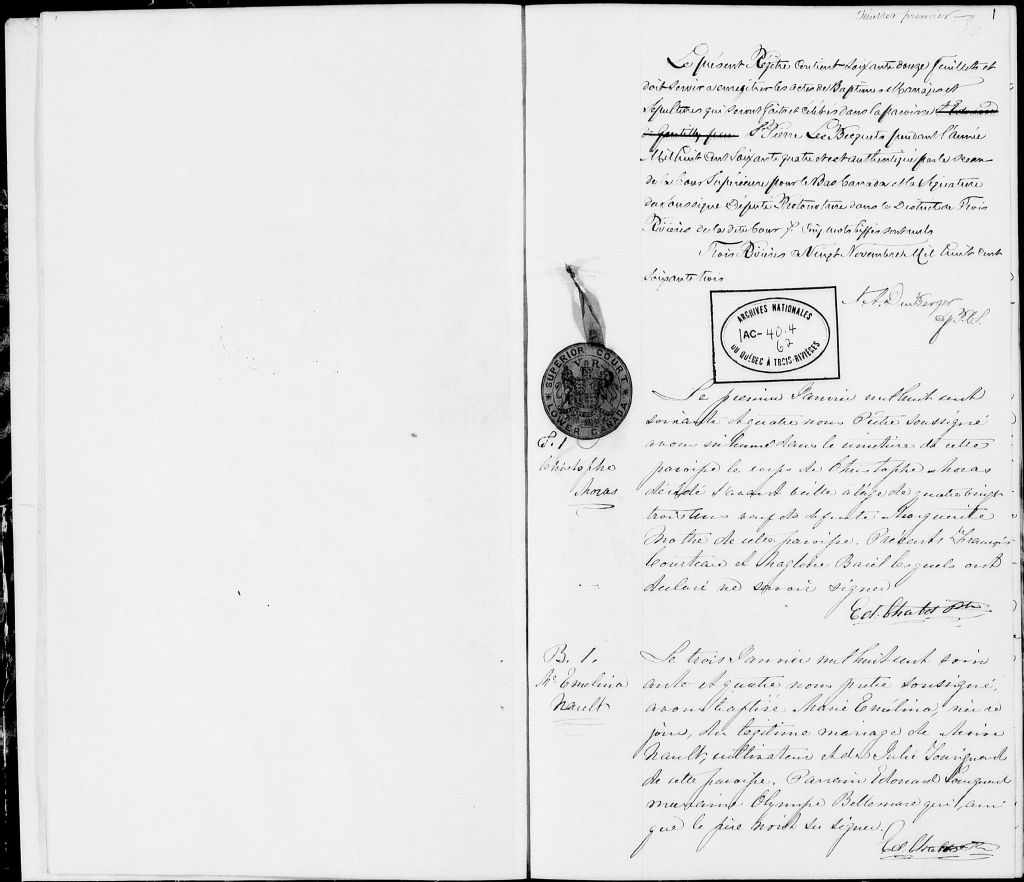 feuillet premier
1
Le présent Régitre contient soixante douze feuillets et
doit servir a enrégitrer les actes de Baptêmes Mariages et
Sépultures qui seront faits et célébrés dans la paroisse St Edouard
de Gentilly pour St Pierre Les Becquets pendant l'année
Mil huit cent Soixante quatre et est authentiqué par le sceau
de la Cour Supérieure pour le Bas Canada et la Signature
du soussigné Député Protonotaire dans le District de Trois
Rivières de la dite Cour Cinq mots biffés sont nuls
Trois Rivières ce Vingt Novembre Mil huit cent
soixante trois
ARCHIVES NATIONALES
1AC-40.4
62
DU QUÉBEC À TROIS-RIVIÈRES
SUPERIOR COURT
V R
LOWER CANADA
S. 1
Christophe
Moras
Le premier Janvier mil huit cent
soixante et quatre nous Prêtre soussigné
avons inhumé dans le cimetière de cette
paroisse le corps de Christophe Moras
décédé l'avant veille à l'âge de quatre vingt
trois ans veuf de défunte Marguerite
de cette paroisse. Présents François
Courteau et Magloire Baril lesquels ont
déclaré ne savoir signer
Ed. Chabot Ptre
B. 1.
Me Emelina
Nault
Le trois Janvier mil huit cent soix
ante et quatre nous prêtre soussigné,
avons baptisé Marie Emélina, née ce
jour, du légitime mariage de Moïse
Nault, cultivateur et de Julie
de cette paroisse. Parrain Edouard
marraine Olympe Bellemare qui, ainsi
que le père n'ont su signer.
Ed. Chabot Ptre